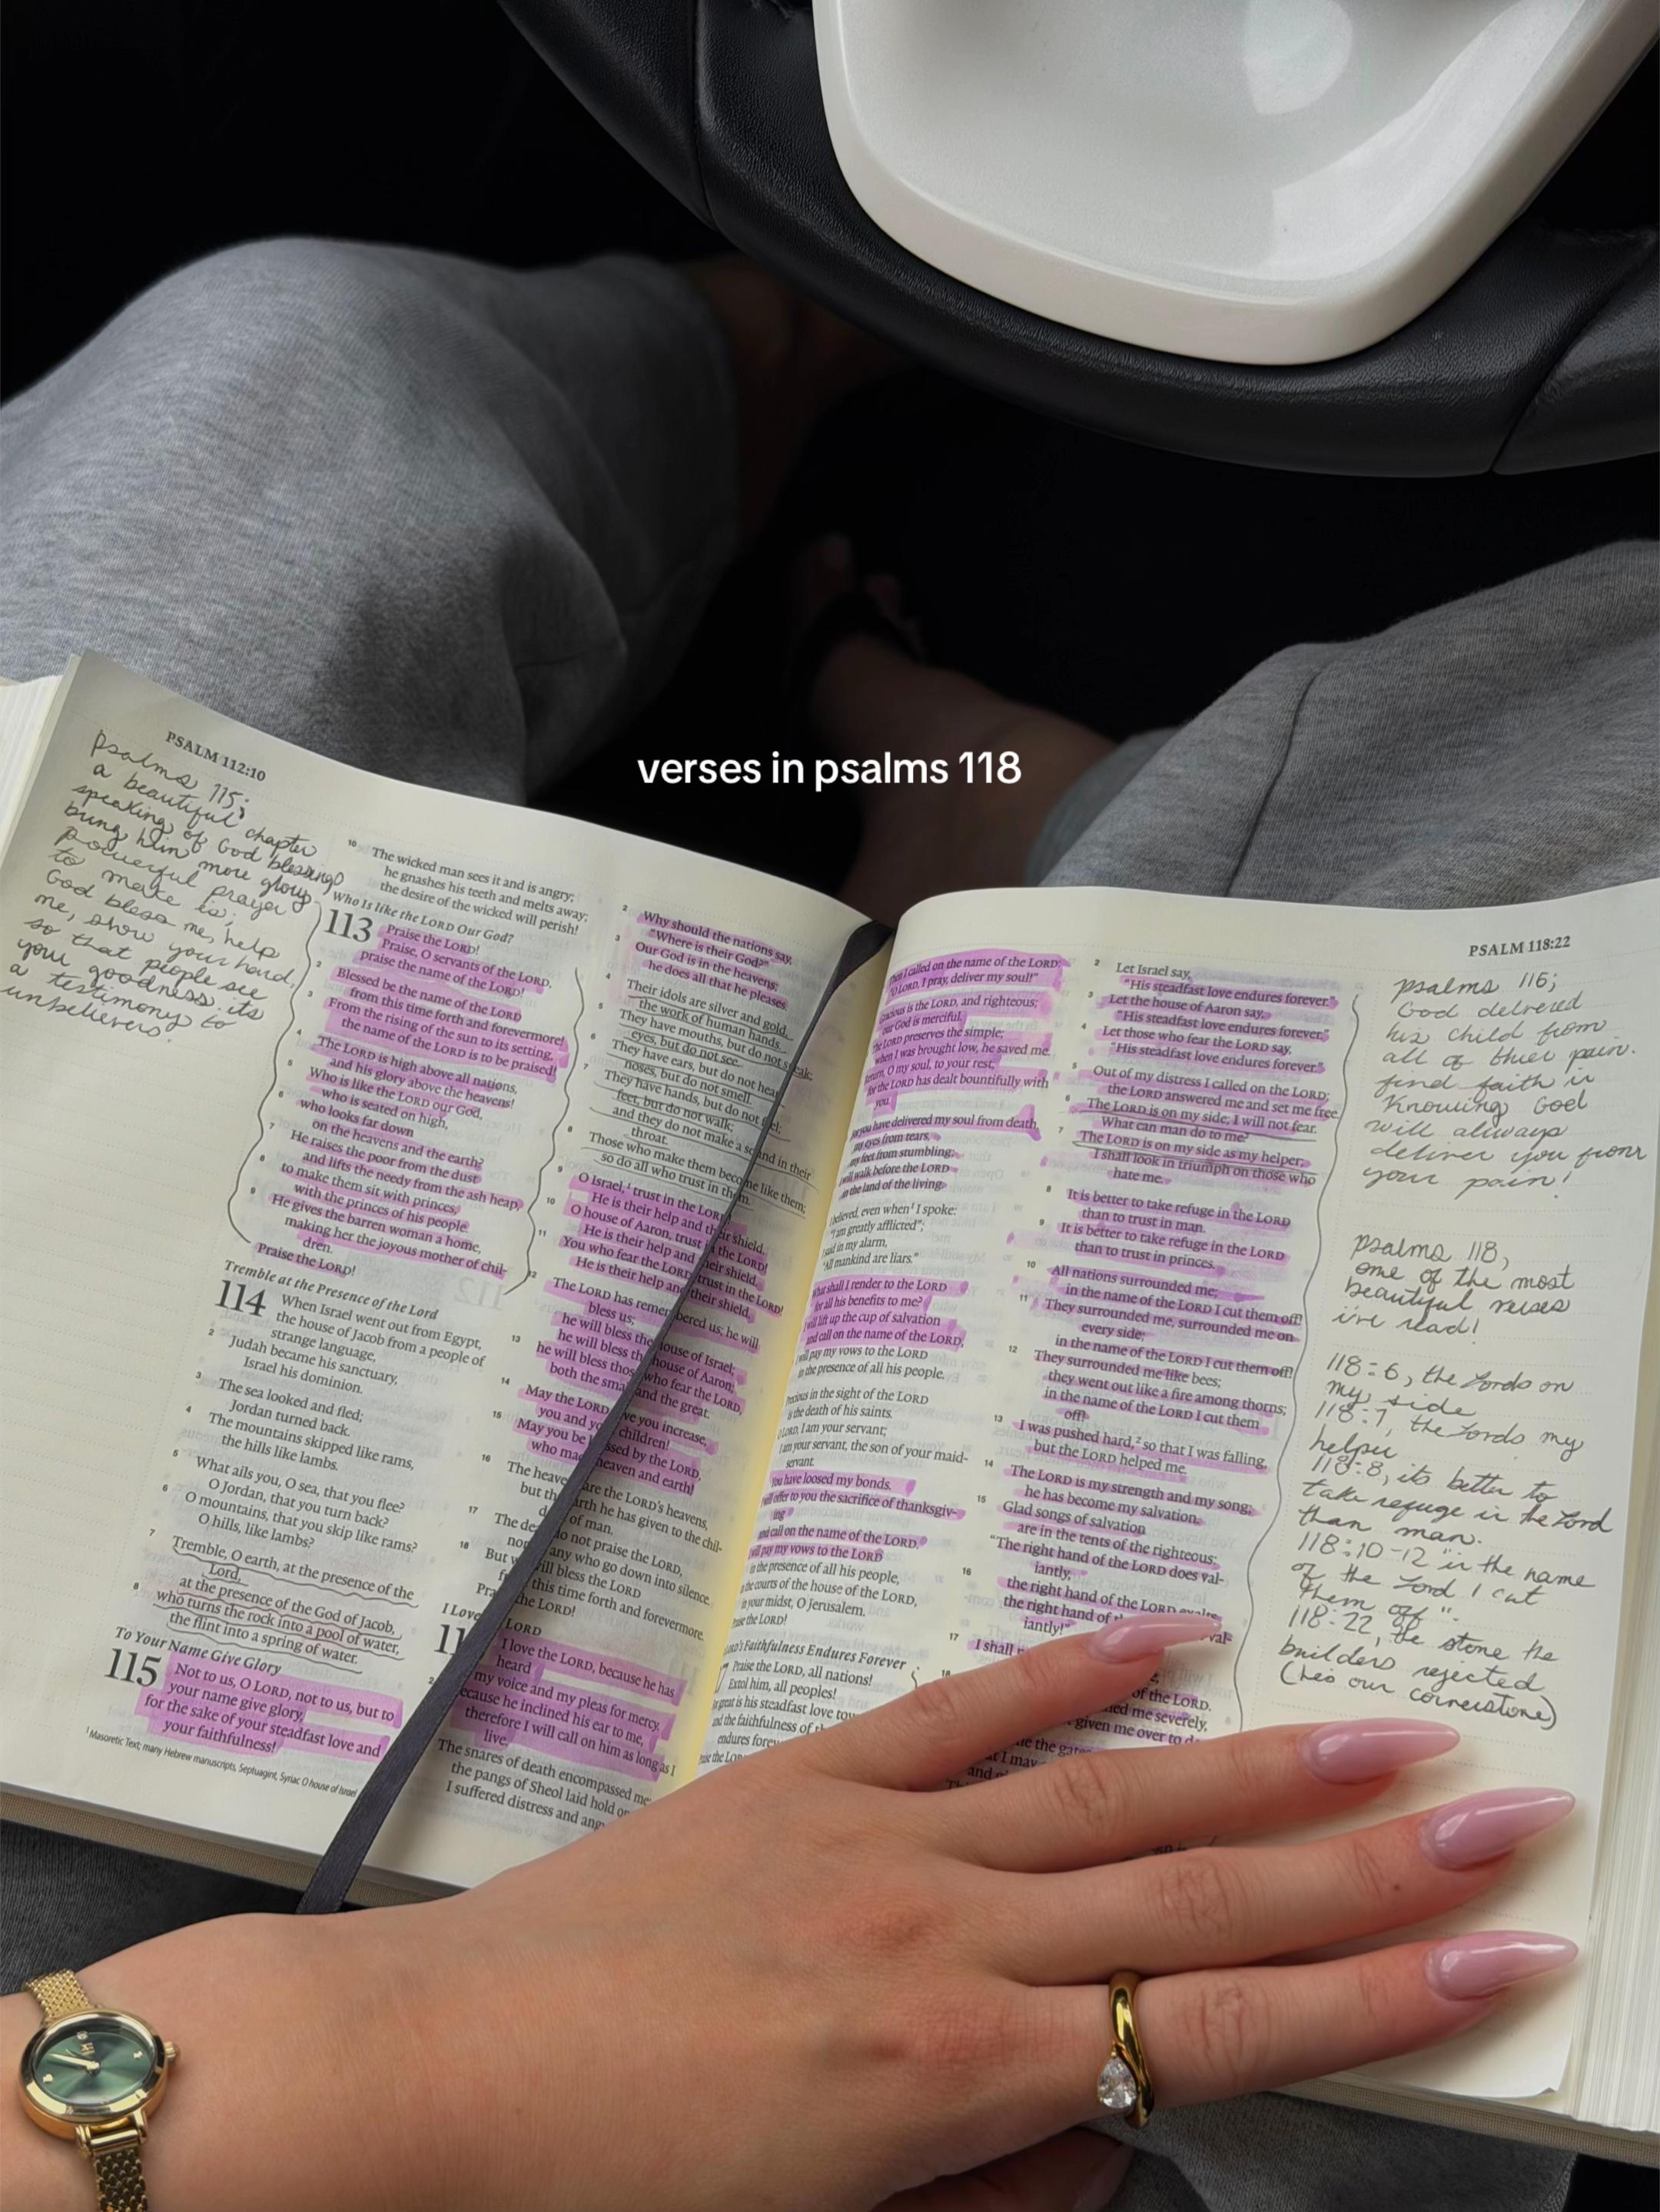 verses in psalms 118
PSALM 112:10
psalms 115;
a beautiful chapter
speaking of God blessings
bring him more glory
powerful prayer
to make is;
God bless me, help
me, show your hand,
so that people see
your goodness, its
a testimony to
unbelievers.
10 The wicked man sees it and is angry;
he gnashes his teeth and melts away;
the desire of the wicked will perish!
Who Is like the LORD Our God?
113 Praise the LORD!
Praise, O servants of the LORD,
praise the name of the LORD!
2 Blessed be the name of the LORD
from this time forth and forevermore!
3 From the rising of the sun to its setting,
the name of the LORD is to be praised!
4 The LORD is high above all nations,
and his glory above the heavens!
5 Who is like the LORD our God,
who is seated on high,
6 who looks far down
on the heavens and the earth?
7 He raises the poor from the dust
and lifts the needy from the ash heap,
8 to make them sit with princes,
with the princes of his people.
9 He gives the barren woman a home,
making her the joyous mother of chil-
dren.
Praise the LORD!
Tremble at the Presence of the Lord
114 When Israel went out from Egypt,
the house of Jacob from a people of
strange language,
2 Judah became his sanctuary,
Israel his dominion.
3 The sea looked and fled;
Jordan turned back.
4 The mountains skipped like rams,
the hills like lambs.
5 What ails you, O sea, that you flee?
O Jordan, that you turn back?
6 O mountains, that you skip like rams?
O hills, like lambs?
7 Tremble, O earth, at the presence of the
Lord,
at the presence of the God of Jacob,
8 who turns the rock into a pool of water,
the flint into a spring of water.
To Your Name Give Glory
115 Not to us, O LORD, not to us, but to
your name give glory,
for the sake of your steadfast love and
your faithfulness!
1 Masoretic Text; many Hebrew manuscripts, Septuagint, Syriac O house of Israel
2 Why should the nations say,
"Where is their God?"
3 Our God is in the heavens;
he does all that he pleases
4 Their idols are silver and gold,
the work of human hands.
5 They have mouths, but do not speak;
eyes, but do not see.
6 They have ears, but do not hear
noses, but do not smell.
7 They have hands, but do not feel;
feet, but do not walk;
and they do not make a sound in their
throat.
8 Those who make them become like them;
so do all who trust in them.
9 O Israel,1 trust in the LORD
He is their help and their shield.
10 O house of Aaron, trust in the LORD!
He is their help and their shield.
11 You who fear the LORD, trust in the LORD!
He is their help and their shield.
12 The LORD has remembered us; he will
bless us;
he will bless the house of Israel;
he will bless the house of Aaron;
13 he will bless those who fear the LORD,
both the small and the great.
14 May the LORD give you increase,
you and your children!
15 May you be blessed by the LORD,
who made heaven and earth!
16 The heavens are the LORD's heavens,
but the earth he has given to the chil-
of man.
17 The do not praise the LORD,
nor any who go down into silence.
18 But will bless the LORD
this time forth and forevermore.
the LORD!
I Love LORD
11 I love the LORD, because he has
heard
my voice and my pleas for mercy.
2 because he inclined his ear to me,
therefore I will call on him as long as I
live.
The snares of death encompassed me;
the pangs of Sheol laid hold on
I suffered distress and
PSALM 118:22
I called on the name of the LORD:
"O LORD, I pray, deliver my soul!"
is the LORD, and righteous;
our God is merciful.
The LORD preserves the simple;
when I was brought low, he saved me.
Return, O my soul, to your rest;
for the LORD has dealt bountifully with
you.
you have delivered my soul from death,
my eyes from tears,
my feet from stumbling;
will walk before the LORD
in the land of the living.
believed, even when1 I spoke:
"I am greatly afflicted";
said in my alarm,
"All mankind are liars."
What shall I render to the LORD
for all his benefits to me?
will lift up the cup of salvation
and call on the name of the LORD,
will pay my vows to the LORD
in the presence of all his people.
in the sight of the LORD
is the death of his saints.
LORD, I am your servant;
I am your servant, the son of your maid-
servant.
You have loosed my bonds.
will offer to you the sacrifice of thanksgiv-
ing
and call on the name of the LORD.
will pay my vows to the LORD
in the presence of all his people,
in the courts of the house of the LORD,
in your midst, O Jerusalem.
Praise the LORD!
Faithfulness Endures Forever
Praise the LORD, all nations!
Extol him, all peoples!
great is his steadfast love
and the faithfulness of
endures
2 Let Israel say,
"His steadfast love endures forever."
3 Let the house of Aaron say,
"His steadfast love endures forever."
4 Let those who fear the LORD say,
"His steadfast love endures forever."
5 Out of my distress I called on the LORD;
the LORD answered me and set me free.
6 The LORD is on my side; I will not fear.
What can man do to me?
7 The LORD is on my side as my helper;
I shall look in triumph on those who
hate me.
8 It is better to take refuge in the LORD
than to trust in man.
9 It is better to take refuge in the LORD
than to trust in princes.
10 All nations surrounded me;
in the name of the LORD I cut them off!
11 They surrounded me, surrounded me on
every side;
in the name of the LORD I cut them off!
12 They surrounded me like bees;
they went out like a fire among thorns;
in the name of the LORD I cut them
off!
13 I was pushed hard,2 so that I was falling,
but the LORD helped me.
14 The LORD is my strength and my song;
he has become my salvation.
15 Glad songs of salvation
are in the tents of the righteous:
"The right hand of the LORD does val-
iantly,
16 the right hand of the LORD exalts,
the right hand of val-
iantly!"
17 I shall
18
of the LORD.
me severely,
given me over to
the gates
I may
and
psalms 116;
God delivered
his child from
all of thier pain.
find faith in
Knowing God
will always
deliver you from
your pain!
psalms 118,
one of the most
beautiful verses
i've read!
118:6, the Lords on
my side
118:7, the Lords my
helper
118:8, its better to
take refuge in the Lord
than man.
118:10-12 "in the name
of the Lord I cut
them off".
118:22, the stone the
builders rejected
(hes our cornerstone)